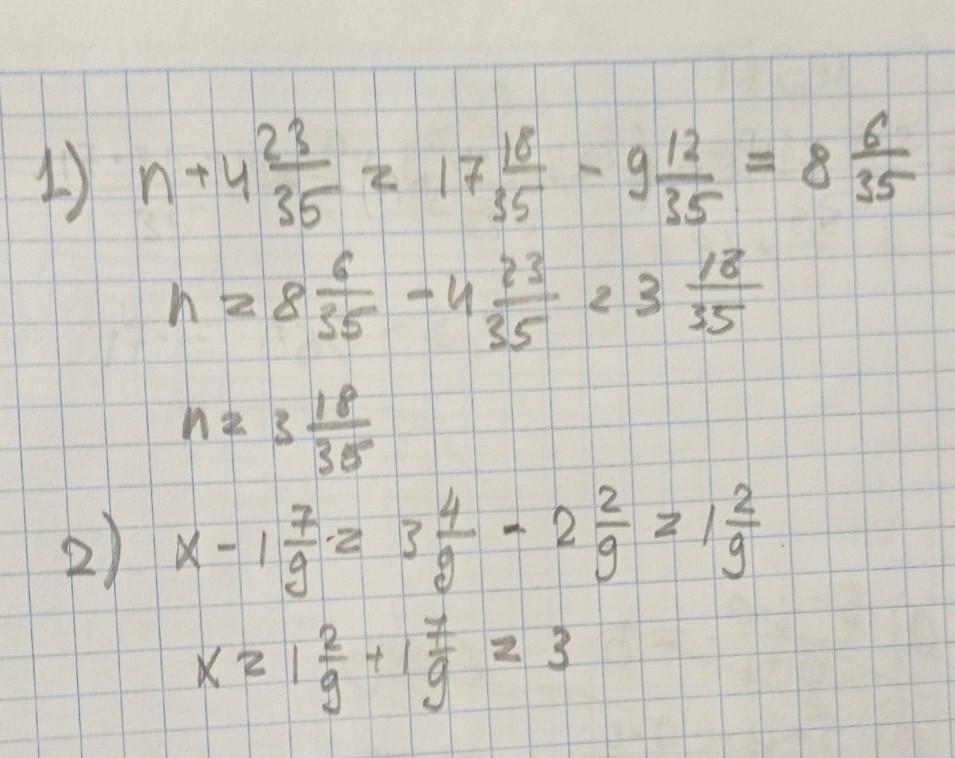 1) n + 4 23/35 = 17 18/35 - 9 12/35 = 8 6/35
n = 8 6/35 - 4 23/35 = 3 18/35
n = 3 18/35
2) x - 1 7/9 = 3 4/9 - 2 2/9 = 1 2/9
x = 1 2/9 + 1 7/9 = 3